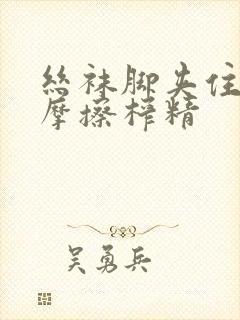 丝袜脚夹住
摩擦榨精
吴勇兵